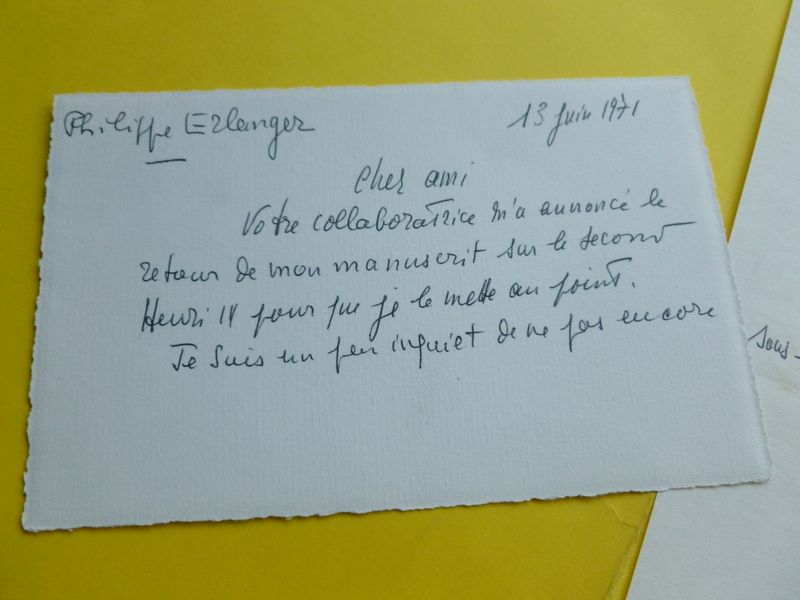 Philippe Erlanger
13 Juin 1971
Cher ami
Votre collaboratrice m'a annoncé le
retour de mon manuscrit sur le second
Henri IV pour que je le mette au point.
Je suis un peu inquiet de ne pas encore
sous-